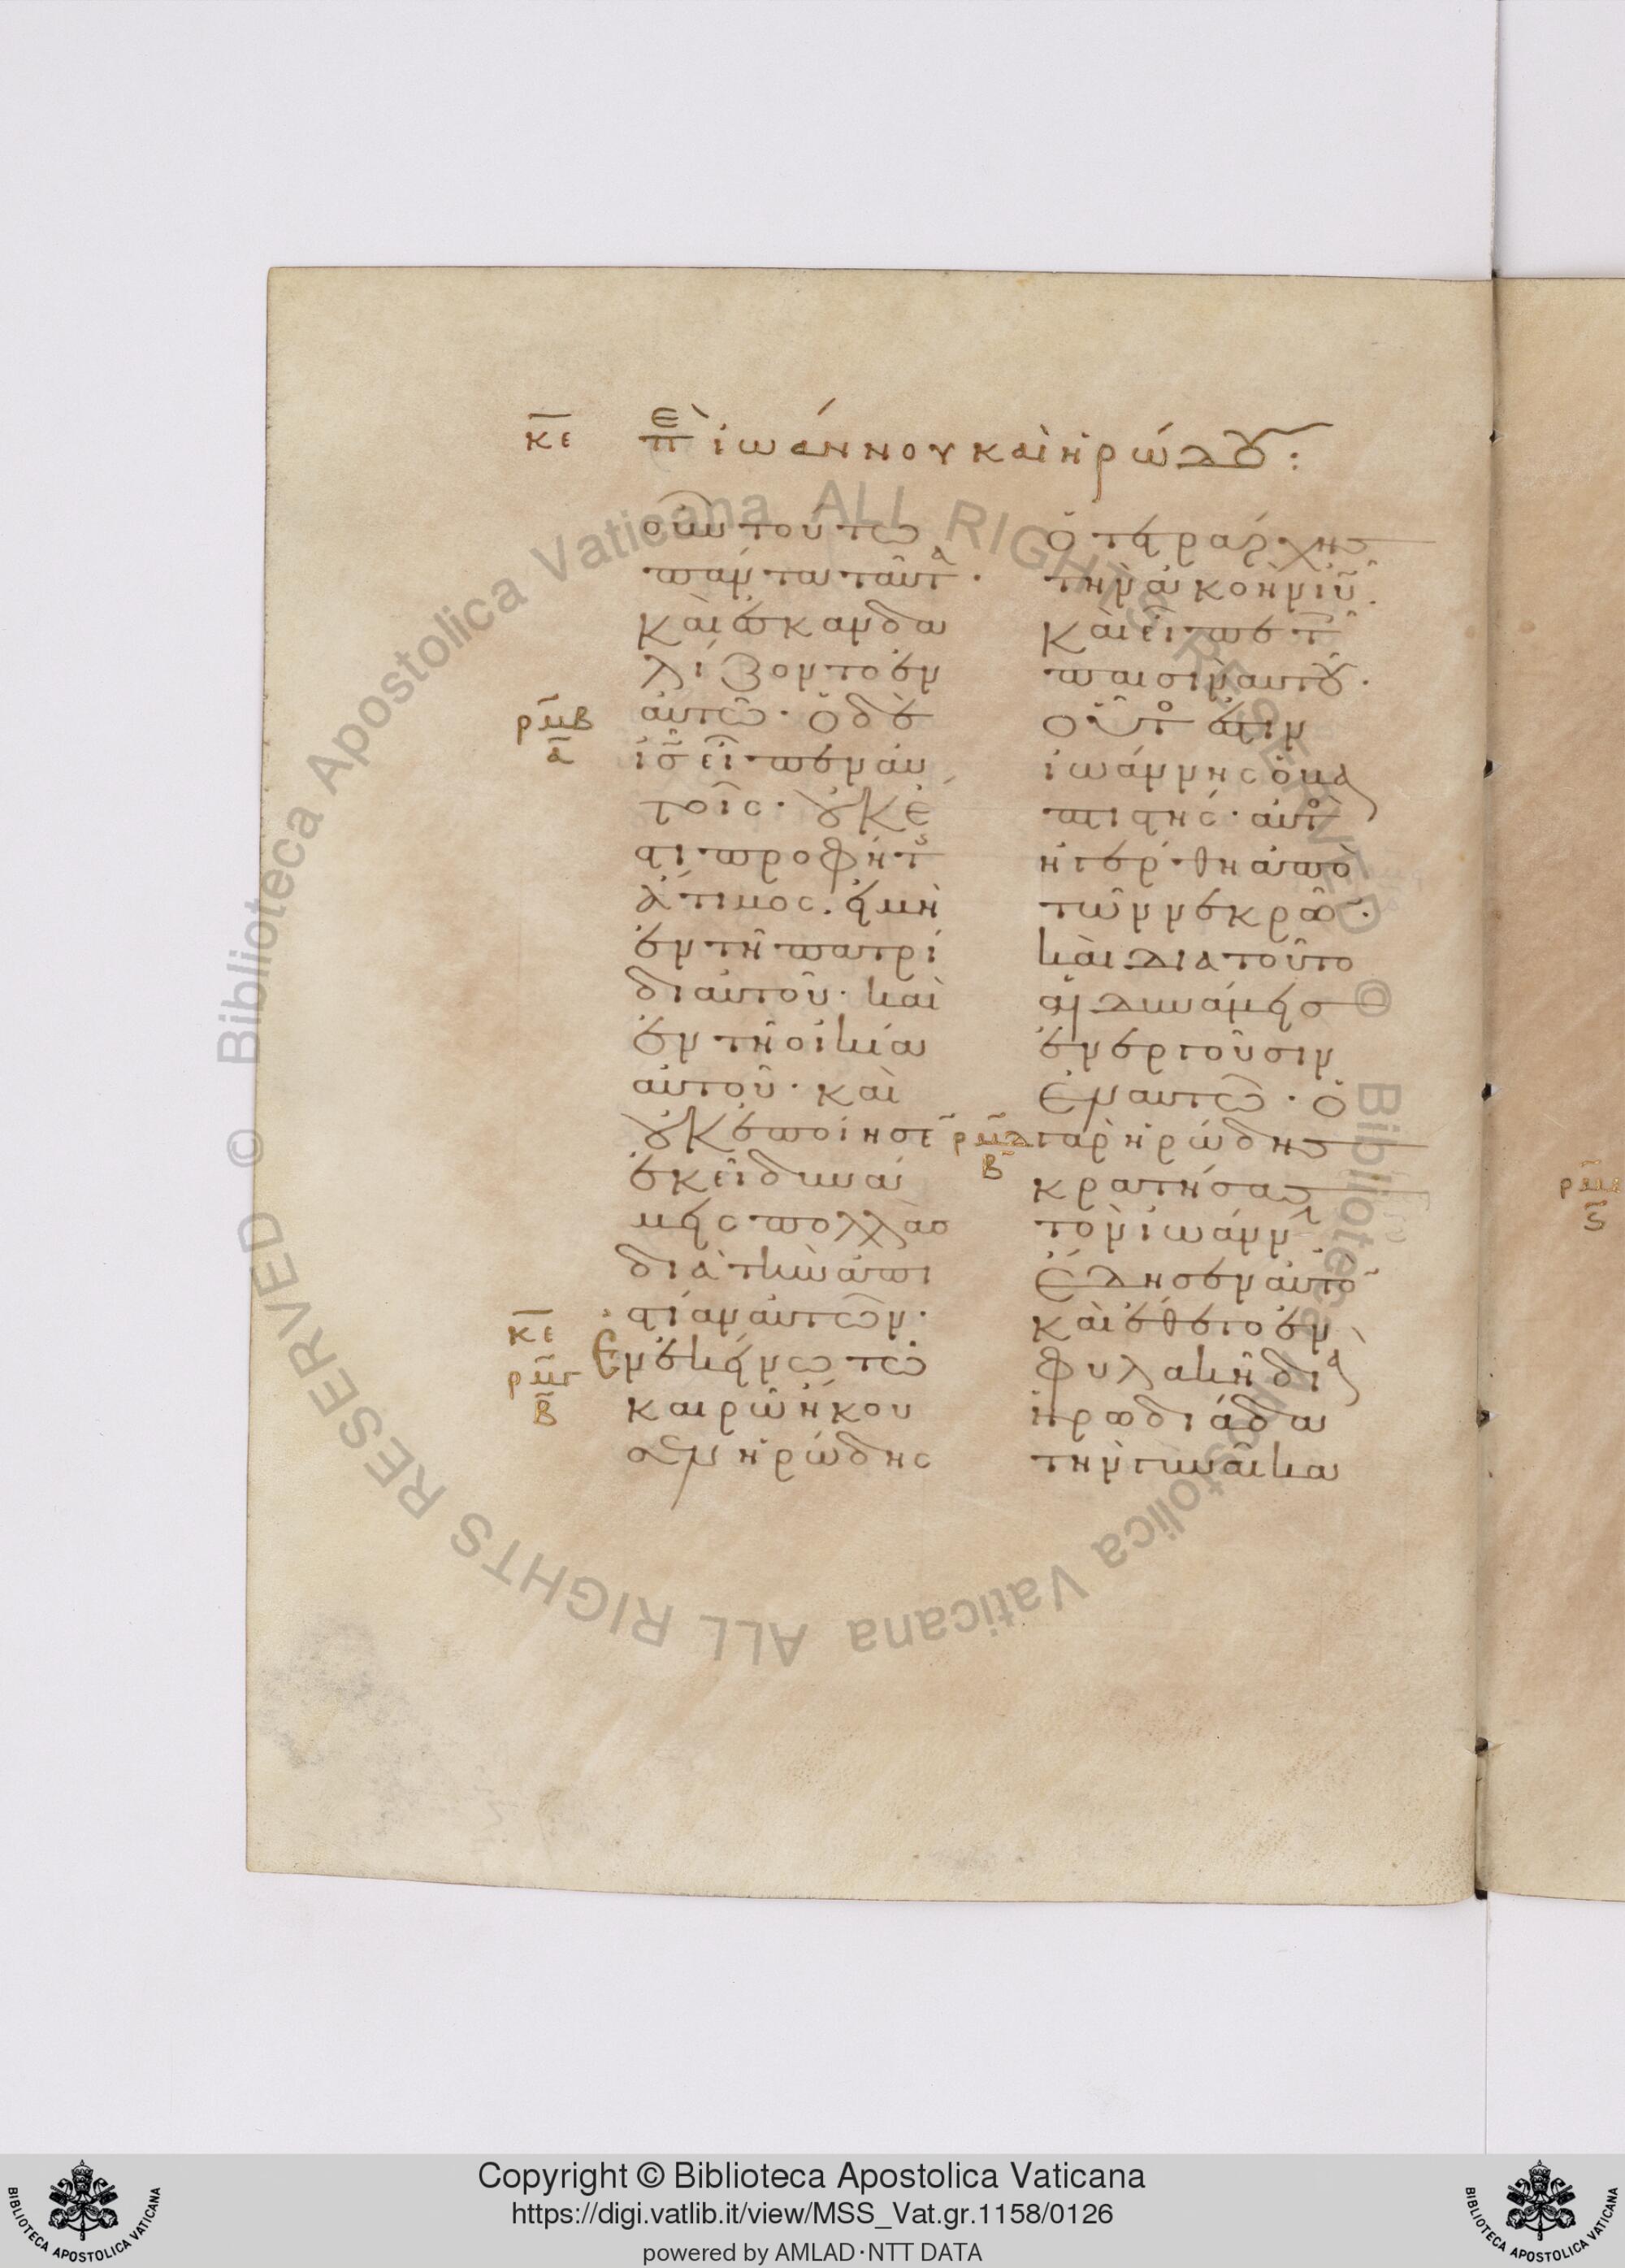 κε ἐπὶ ἰωάννου καὶ ἡρώδου:
οὖν τούτω
πάντα ταῦτα.
καὶ ἐσκανδα
λίζοντο ἐν
ρμβ α αὐτῶ· ὁ δὲ
ισ εἶπεν αὐ
τοῖς· οὐκ ἔ
στι προφήτης
ἄτιμος. εἰ μὴ
ἐν τῆ πατρί
δι αὐτοῦ· καὶ
ἐν τῆ οἰκία
αὐτοῦ· καὶ
οὐκ ἐποίησεν
ἐκεῖ δυνά
μεις πολλὰσ
διὰ τὴν ἀπι
στίαν αὐτῶν·
κε ρμγ β Ἐν ἐκείνω τῶ
καιρῶ ἤκου
σεν ἡρώδης
ὁ τετράρχης
τὴν ἀκοὴν ιυ.
καὶ εἶπε τοῖς
παισὶν αὐτοῦ.
οὗτός ἐστιν
ἰωάννης ὁ βα
πτιστής· αὐτὸς
ἠγέρθη ἀπὸ
τῶν νεκρῶν·
καὶ διὰ τοῦτο
αἱ δυνάμεις
ἐνεργοῦσιν
ἐν αὐτῶ· ὁ
ρμδ β γὰρ ἡρώδης
κρατήσας
τὸν ἰωάννην
ἔδησεν αὐτὸν
καὶ ἔθετο ἐν
φυλακῆ διὰ
ἡρωδιάδα
τὴν γυναῖκα
© Biblioteca Apostolica Vaticana ALL RIGHTS RESERVED © Biblioteca Apostolica Vaticana ALL RIGHTS RESERVED
Copyright © Biblioteca Apostolica Vaticana
https://digi.vatlib.it/view/MSS_Vat.gr.1158/0126
powered by AMLAD·NTT DATA
BIBLIOTECA APOSTOLICA VATICANA
BIBLIOTECA APOSTOLICA VATICANA